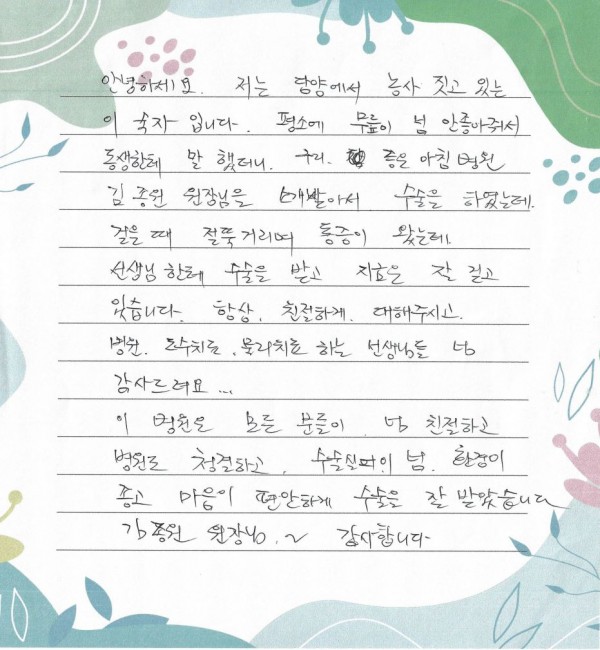 안녕하세요. 저는 담양에서 농사 짓고 있는
이 숙자 입니다. 평소에 무릎이 넘 안좋아줘서
동생한테 말 했더니. 구리. 좋은 아침 병원
김 종원 원장님을 소개받아서 수술을 하였는데.
걸을 때 절뚝 거리며 통증이 왔는데.
선생님 한테 수술을 받고 지효은 잘 걷고
있습니다. 항상. 친절하게. 대해주시고.
병원. 도수치료, 물리치료 하는 선생님들 넘
감사드려요...
이 병원은 모든 분들이. 넘 친절하고
병원도 청결하고. 수술실파이 넘. 환경이
좋고 마음이 편안하게 수술을 잘 받았습니다
김종원 원장님.~ 감사합니다.